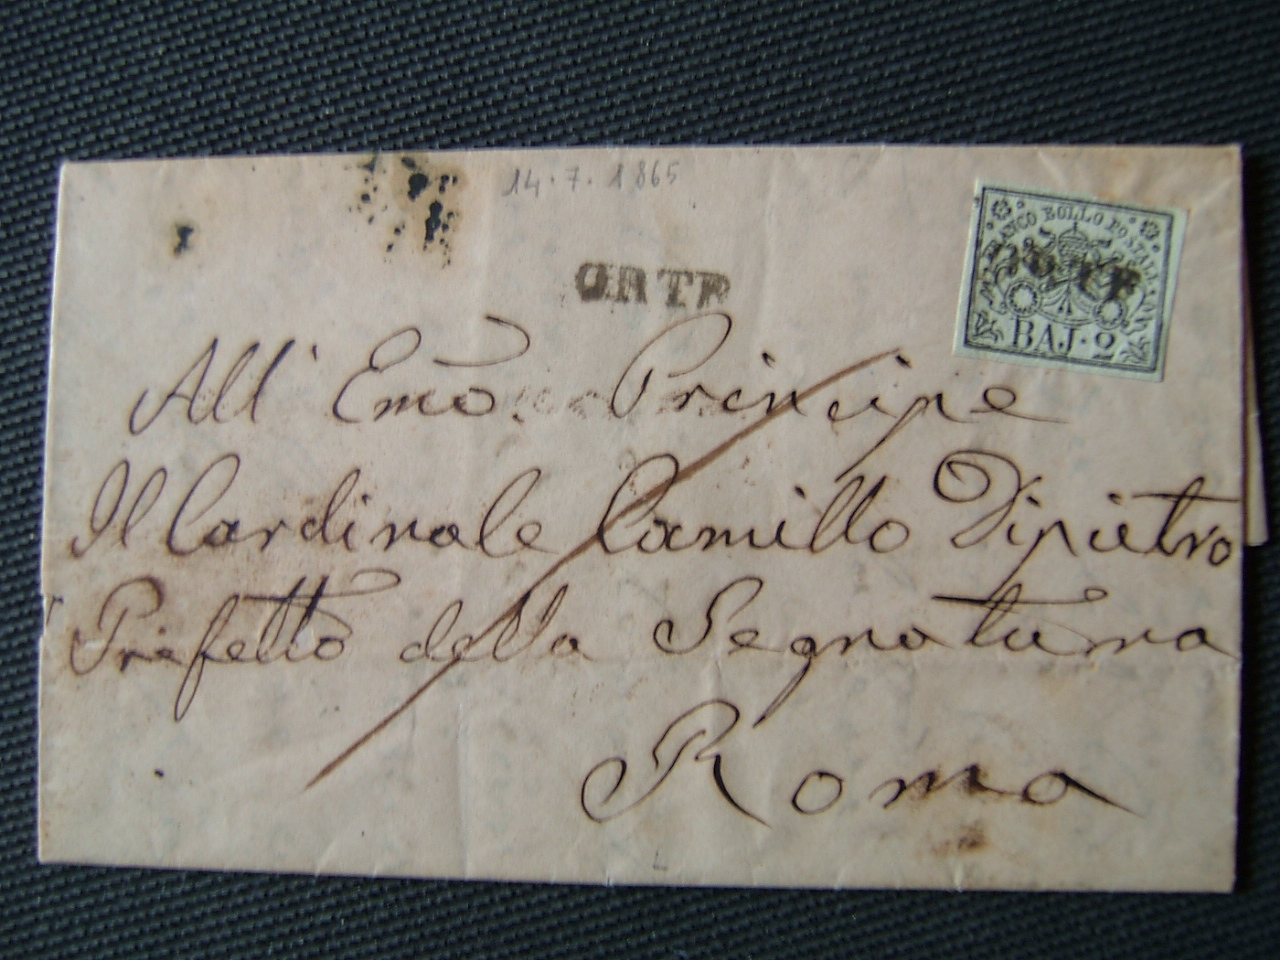 14.7.1865
FRANCO BOLLO POSTALE
ORTE
ORTE
BAJ. 2
All' Emō Principe
Il Cardinale Camillo Dipietro
Prefetto della Segnatura
Roma